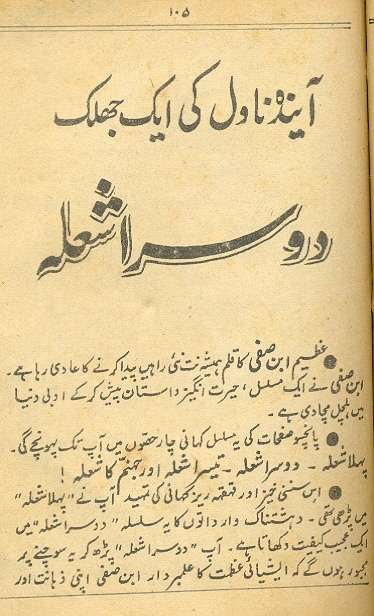 ۱۰۵
آیندہ ناول کی ایک جھلک
دوسرا شعلہ
● عظیم ابن صفی کا قلم ہمیشہ نت نئی راہیں پیدا کرنے کا عادی رہا ہے۔
ابن صفی نے ایک مسلسل، حیرت انگیز داستان پیش کر کے ادبی دنیا
میں ہلچل مچا دی ہے۔
● پانچسو صفحات کی یہ مسلسل کہانی چار حصّوں میں آپ تک پہونچے گی۔
پہلا شعلہ - دوسرا شعلہ - تیسرا شعلہ اور جہنم کا شعلہ!
● اس سنسنی خیز اور قہقہہ ریز کہانی کی تمہید آپ نے "پہلا شعلہ"
میں پڑھی تھی۔ دہشتناک وارداتوں کا یہ سلسلہ "دوسرا شعلہ" میں
ایک عجیب کیفیت دکھاتا ہے۔ آپ "دوسرا شعلہ" پڑھ کر یہ سوچنے پر
مجبور ہوں گے کہ ایشیائی عظمت کا علمبردار ابن صفی اپنی ذہانت اور